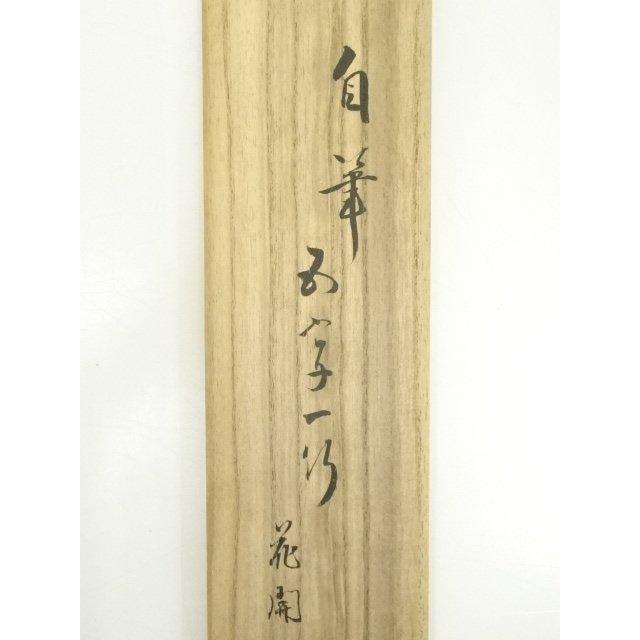 自筆
五字一行
花開